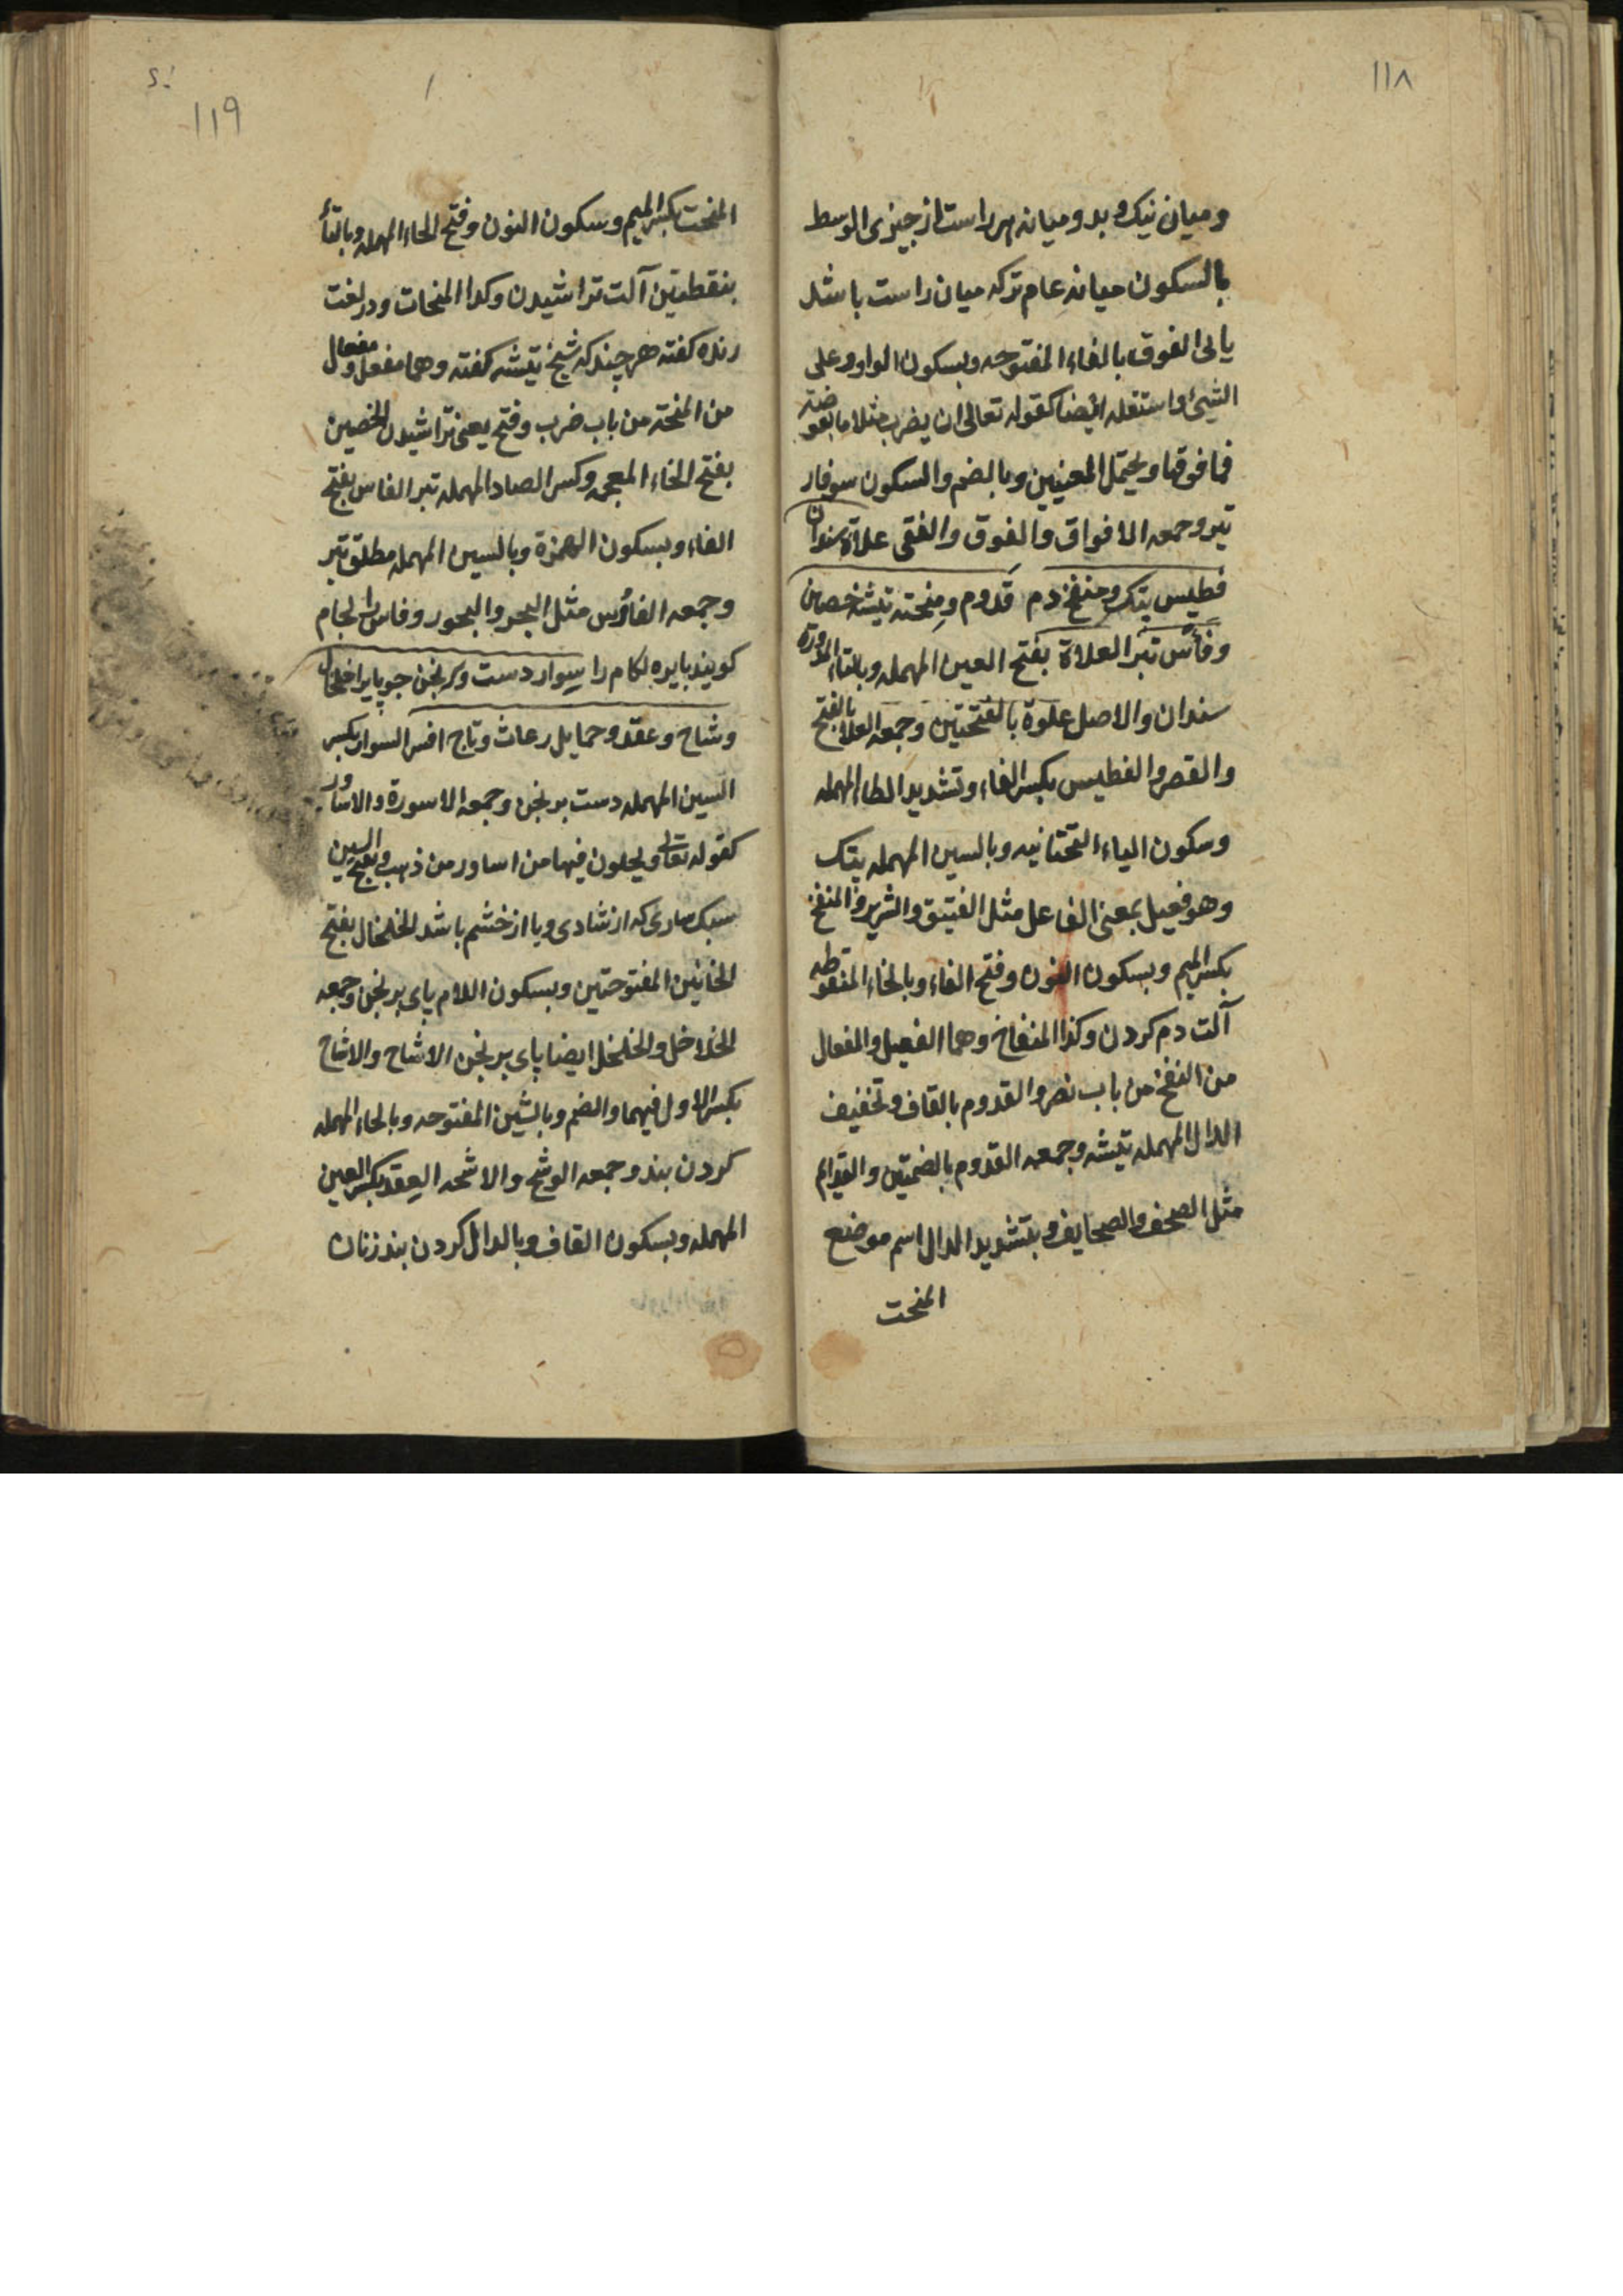 ١١٨
وميان نيك وبد وميانه هر راست از چيزى الوسط
بالسكون ميانه عام تركه ميان راست باشد
يا بى الفوق بالفاء المفتوحه وبسكون الواو وعلى
الشيئ واستقله ايضا كقوله تعالى ان يضرب مثلا ما بعوضة
فما فوقها ويحتمل المعنيين وبالضم والسكون سوفار
تير وجمعه الافواق والفوق والفقى علاة سندان
فطيس پتك ومنفخ دم قدوم ومنحته تيشه خصين
وفأس تبر العلاة بفتح العين المهمله وبالتاء المدورة
سندان والاصل علوة بالفتحتين وجمعه العلا بالفتح
والقصر والفطيس بكسر الفاء وتشديد الطاء المهمله
وسكون الياء التحتانيه وبالسين المهمله پتك
وهو فعيل بمعنى الفاعل مثل الفتيق والشرير والمنفخ
بكسر الميم وبسكون النون وفتح الفاء وبالخاء المنقوطه
آلت دم كردن وكذا المنفاخ وهما الفعيل والمفعال
من النفخ من باب نصر والقدوم بالقاف وتخفيف
الدال المهمله تيشه وجمعه القدوم بالضمتين والقدايم
مثل الصحف والصحايف وبتشديد الدال اسم موضع
المنحت
١١٩
المنحت بكسر الميم وسكون النون وفتح الحاء المهمله وبالتاء
بنقطتين آلت تراشيدن وكذا المنحات ودر لغت
رنده كفته هر چند كه شيخ تيشه كفته وهما مفعل ومفعال
من المنحته من باب ضرب وفتح يعنى تراشيدن الخصين
بفتح الخاء المعجمه وكسر الصاد المهمله تبر الفاس بفتح
الفاء وبسكون الهمزة وبالسين المهمله مطلق تبر
وجمعه الفاؤس مثل البحر والبحور وفاس لجام
كويند بايره لكام را سوار دست وبرنجن جو پاى را خلخال
وشاح وعقد وحمايل رعاث وتاج افسر السوار بكسر
السين المهمله دست برنجن وجمعه الاسورة والاساور
كقوله تعالى ويحلون فيها من اساور من ذهب وبفتح السين
سبك سارى كه از شادى ويا از خشم باشد الخلخال بفتح
الخائين المفتوحتين وبسكون اللام پاى برنجن وجمعه
الخلاخل والخلخل ايضا پاى برنجن الاشاح والاشاح
بكسر الاول فيهما والضم وبالشين المفتوحه وبالحاء المهمله
كردن بند وجمعه الوشح والاشحه العقد بكسر العين
المهمله وبسكون القاف وبالدال كردن بند زنان